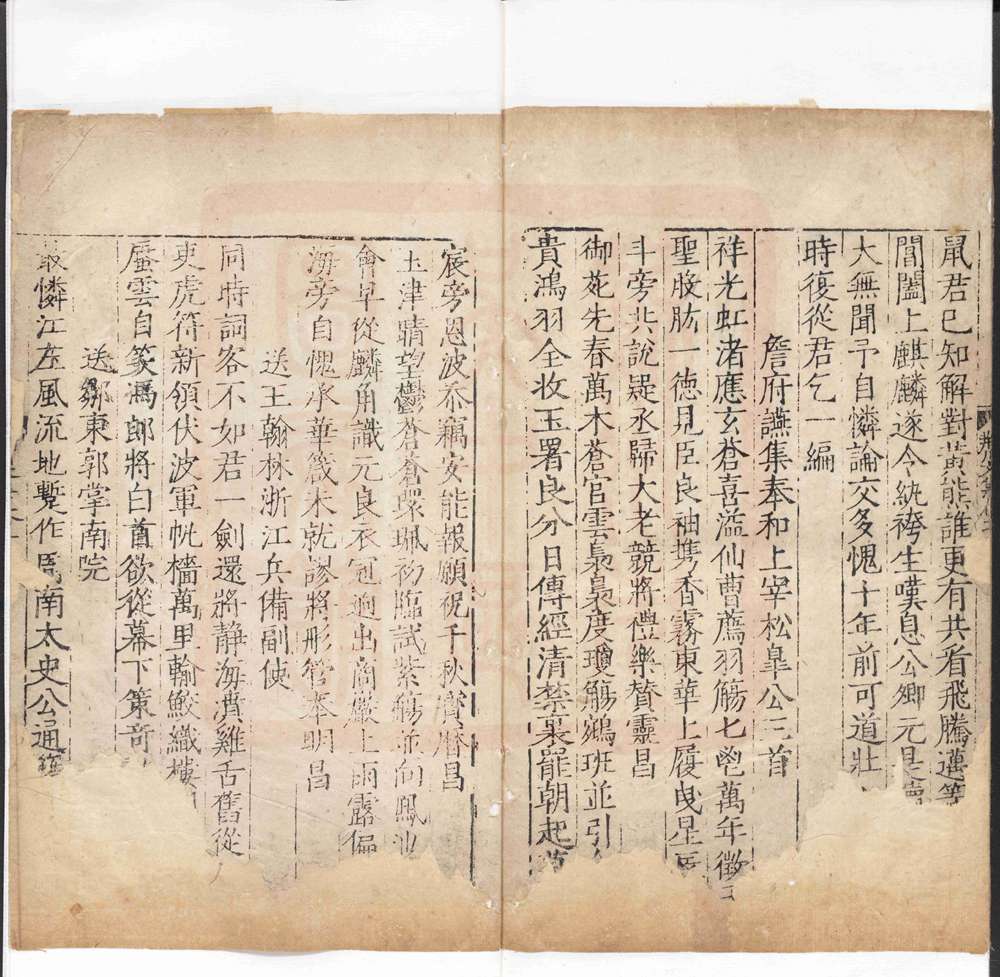 鼠君已知解對黃能誰更有共看飛騰邁等
閶闔上麒麟遂令紈袴生嘆息公卿元是
大無聞予自憐論交多愧十年前可道壯
時復從君乞一編
詹府讌集奉和上宰松皐公三首
祥光虹渚應玄蒼喜溢仙曹薦羽觴七鬯萬年徵
聖股肱一德見臣良袖携香霧東華上履曳星
斗旁共說疑丞歸大老競將禮樂贊靈昌
御苑先春萬木蒼官雲裊裊度瓊觴鵷班並引
貴鴻羽全收玉署良分日傳經清禁裏罷朝起
宸旁恩波忝竊安能報願祝千秋濱曆昌
玉津晴望鬱蒼蒼環珮初臨試紫觴並向鳳池
會早從麟角識元良衣冠逈出商巖上雨露偏
海旁自愧承華箴未就謬將彤管奉明昌
送王翰林浙江兵備副使
同時詞客不如君一劍還將静海濆雞舌舊從
更虎符新領伏波軍帆檣萬里輸鮫織樓
蜃雲自篆馮郎將白首欲從幕下策奇
送鄒東郭掌南院
最憐江左風流地蹔作周南太史公通籍